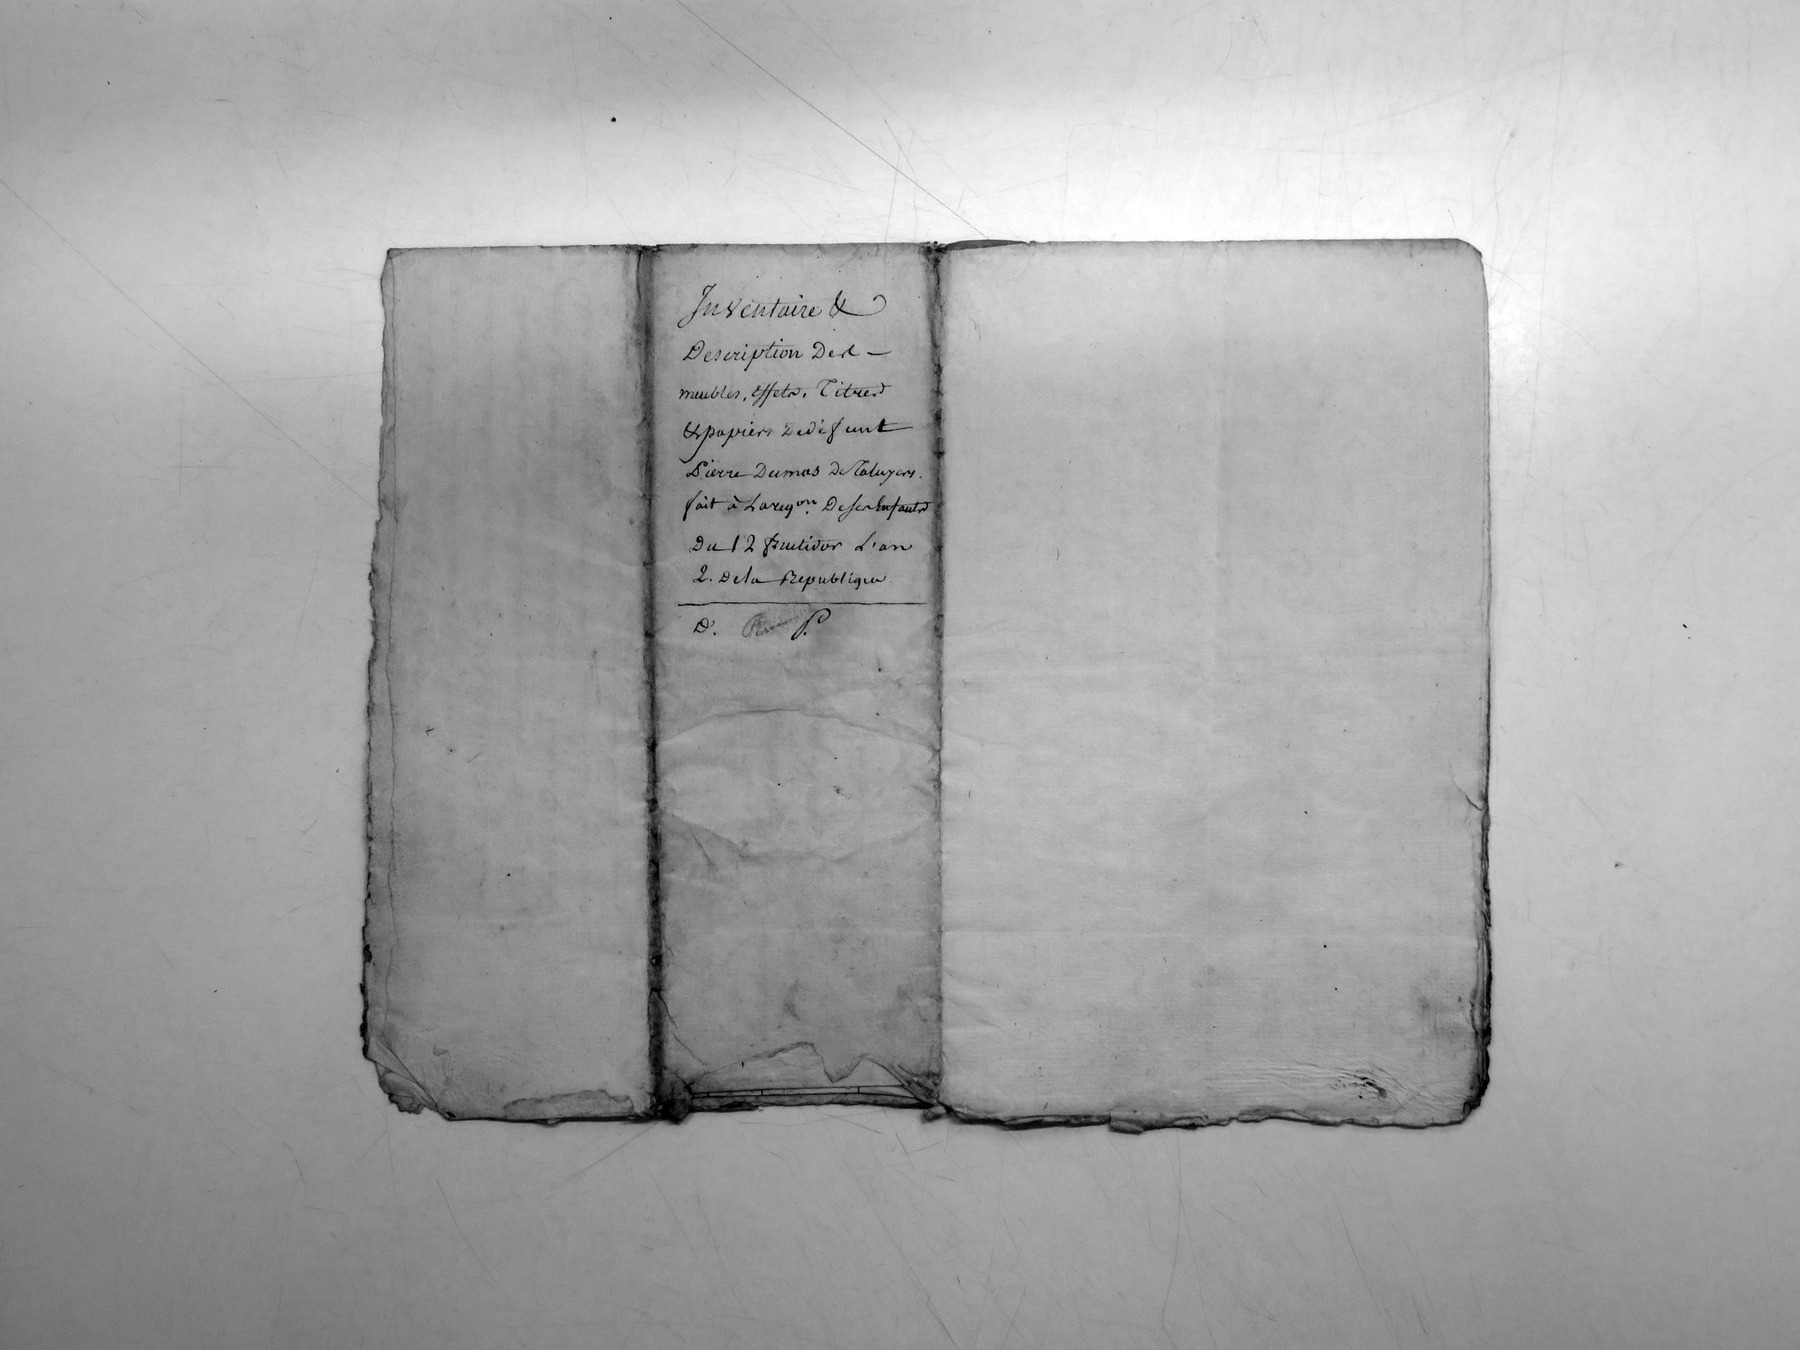 Inventaire &
Description Des
meubles, effets, Titres
& papiers De défunt
Pierre Dumas De Taluyers.
fait à La req.on De ses Enfants
Du 12 fructidor L'an
2. De la Republique
D. P.